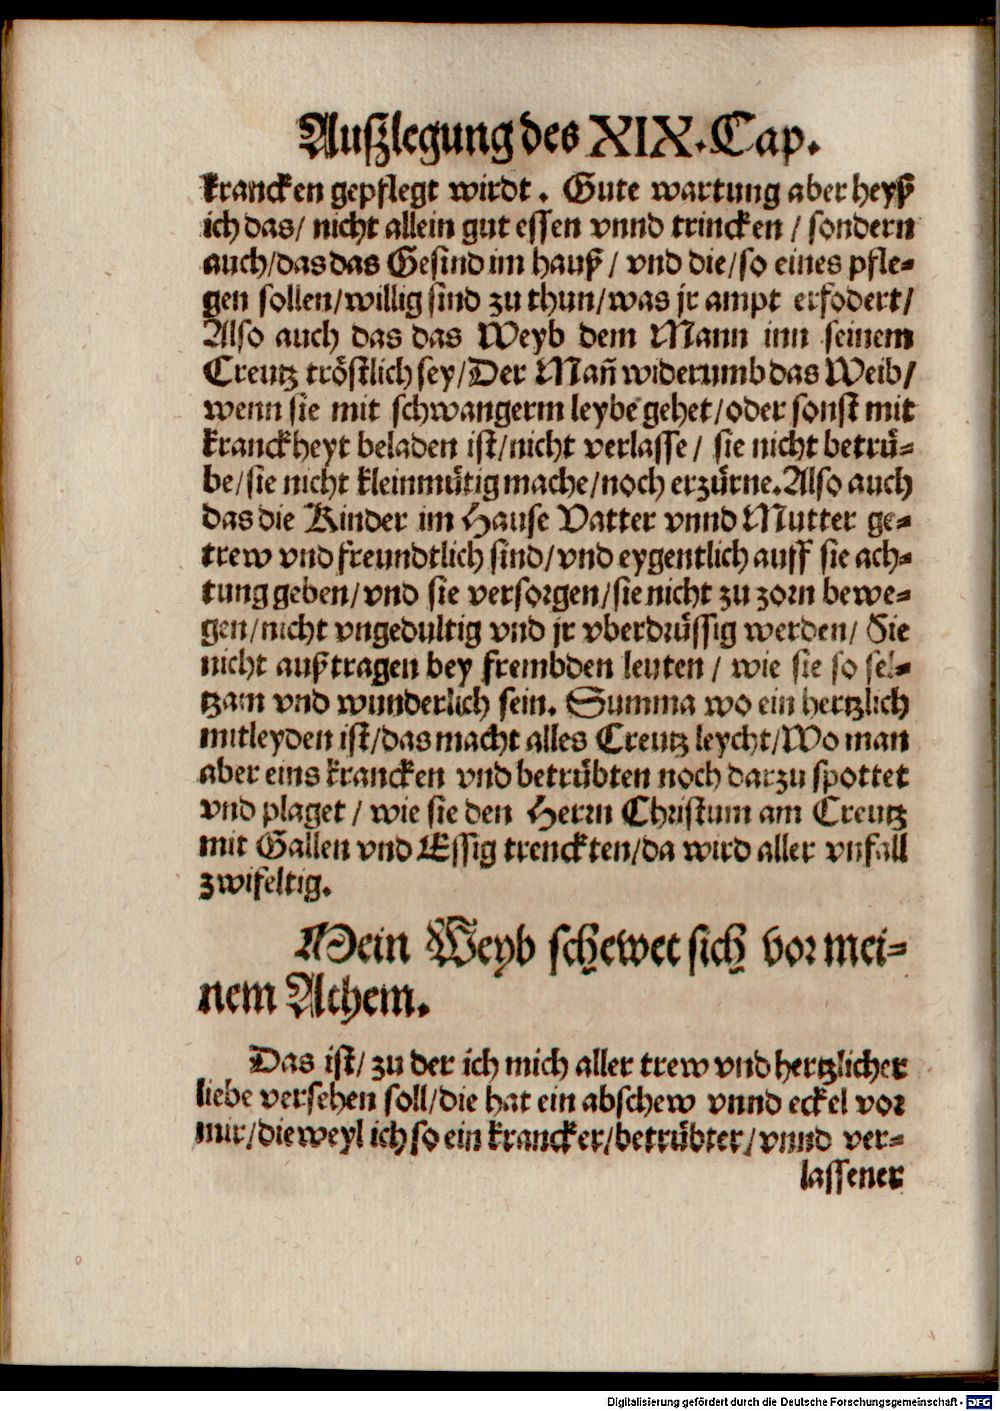 Außzlegung des XIX. Cap.
krancken gepflegt wirdt. Gute wartung aber heyß
ich das/ nicht allein gut essen vnnd trincken / sondern
auch/das das Gesind im hauß / vnd die/so eines pfle-
gen sollen/willig sind zu thun/was jr ampt erfodert/
Also auch das das Weyb dem Mann inn seinem
Creutz tröstlich sey/Der Mañ widerumb das Weib/
wenn sie mit schwangerm leybe gehet/oder sonst mit
kranckheyt beladen ist/nicht verlasse / sie nicht betrü-
be/sie nicht kleinmütig mache/noch erzürne.Also auch
das die Kinder im Hause Vatter vnnd Mutter ge-
trew vnd freundtlich sind/vnd eygentlich auff sie ach-
tung geben/vnd sie versorgen/sie nicht zu zorn bewe-
gen/nicht vngedultig vnd jr vberdrüssig werden/ Sie
nicht außtragen bey frembden leuten / wie sie so sel-
tzam vnd wunderlich sein. Summa wo ein hertzlich
mitleyden ist/das macht alles Creutz leycht/Wo man
aber eins krancken vnd betrübten noch darzu spottet
vnd plaget / wie sie den Herrn Christum am Creutz
mit Gallen vnd Essig trenckten/da wird aller vnfall
zwifeltig.
Mein Weyb schewet sich vor mei-
nem Athem.
Das ist/ zu der ich mich aller trew vnd hertzlicher
liebe versehen soll/die hat ein abschew vnnd eckel vor
mir/dieweyl ich so ein krancker/betrübter/vnnd ver-
lassener
Digitalisierung gefördert durch die Deutsche Forschungsgemeinschaft - DFG